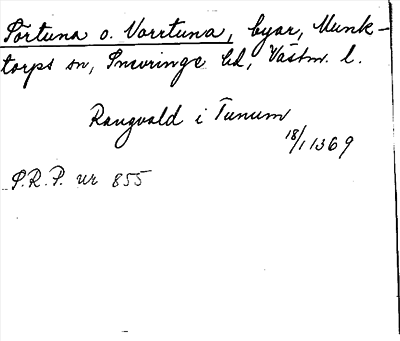 Törtuna o. Norrtuna, byar, Munk-
torps sn, Snevringe hd, Västm. l.
Rangvald i Tunum
18/1 1369
S.R.P. nr 855